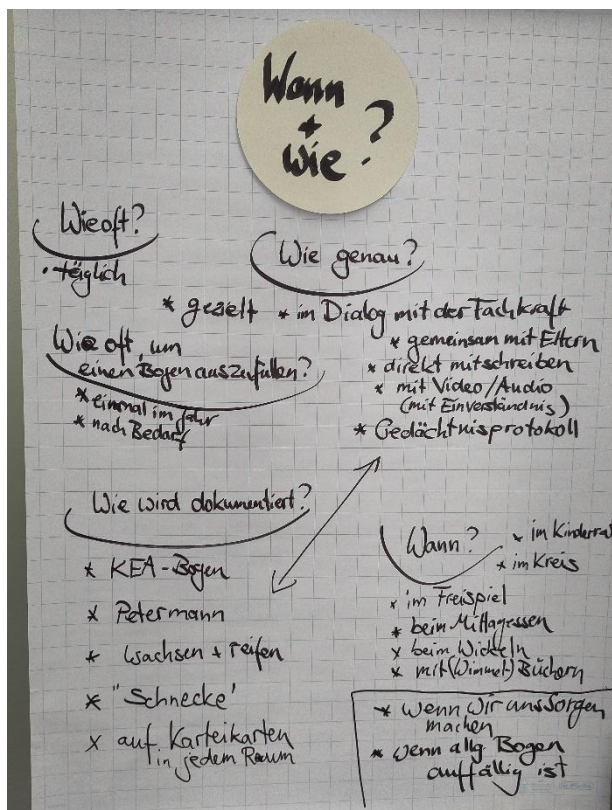 Wann
+
Wie?
Wie oft?
• täglich
Wie genau?
* gezielt
* im Dialog mit der Fachkraft
* gemeinsam mit Eltern
* direkt mitschreiben
* mit Video/Audio
(mit Einverständnis)
* Gedächtnisprotokoll
Wie oft, um
einen Bogen auszufüllen?
* einmal im Jahr
* nach Bedarf
Wie wird dokumentiert?
* KEA-Bogen
x Petermann
* wachsen + reifen
* "Schnecke'
x auf Karteikarten
in jedem Raum
Wann?
* im Kinderrat
* im Kreis
* im Freispiel
* beim Mittagessen
x beim Wickeln
* mit (Wimmel) Büchern
* wenn wir uns Sorgen
machen
* wenn allg Bogen
auffällig ist